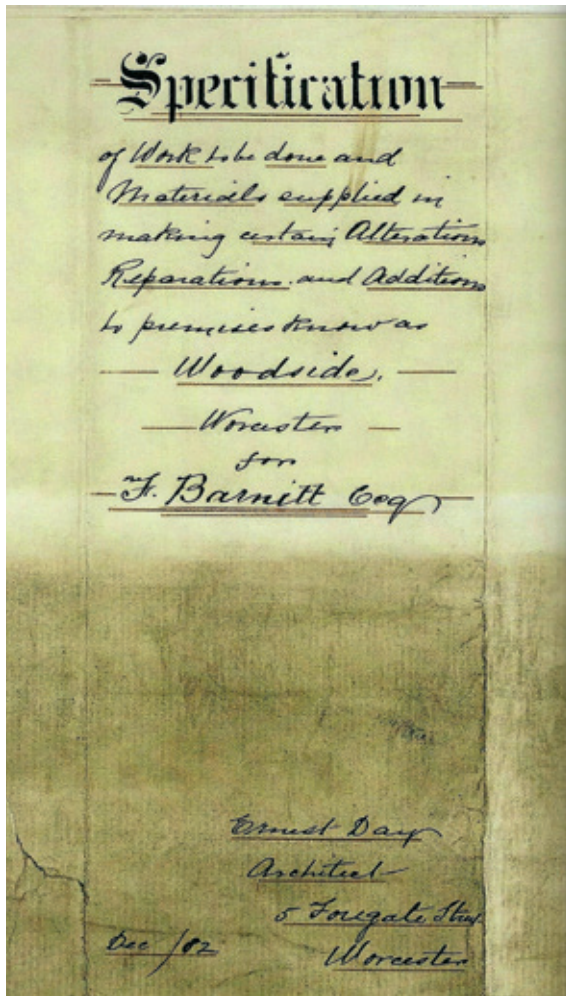 Specification
of Work to be done and
Materials supplied in
making certain Alterations
Reparations and Additions
to premises know as
Woodside,
Worcester
for
F. Barnitt Esq
Ernest Day
Architect
5 Foregate Street
Dec /02
Worcester